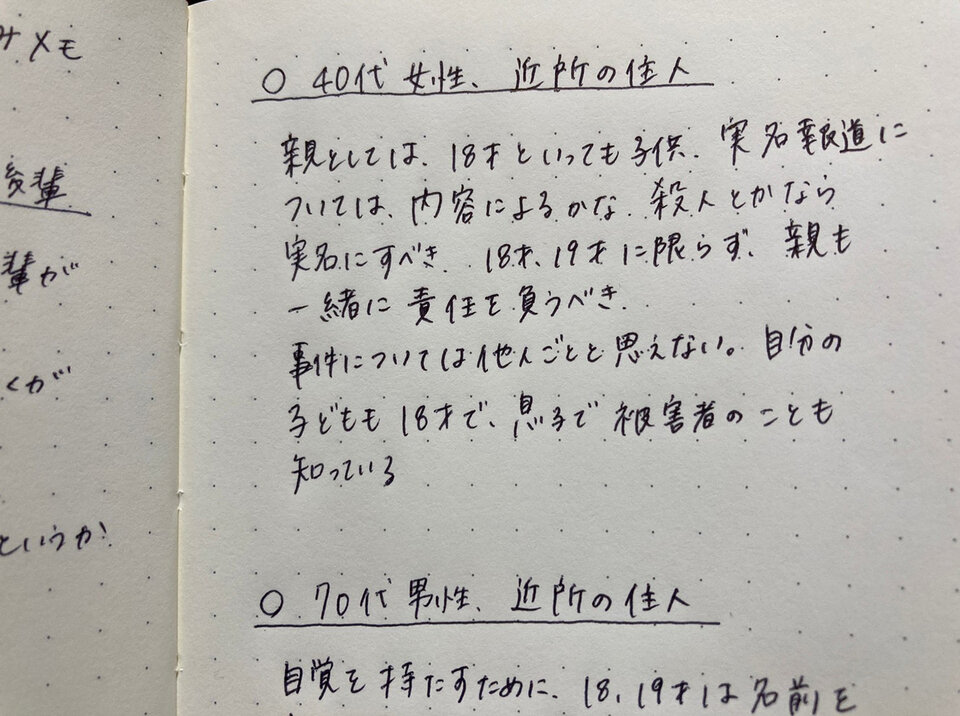 みメモ
後輩
輩が
くが
というか
○ 40代女性、近所の住人
親としては、18才といっても子供、実名報道に
ついては、内容によるかな、殺人とかなら
実名にすべき、18才、19才に限らず、親も
一緒に責任を負うべき、
事件については他人ごとと思えない。自分の
子どもも18才で、息子で被害者のことも
知っている
○ 70代男性、近所の住人
自覚を持たすために、18、19才は名前を